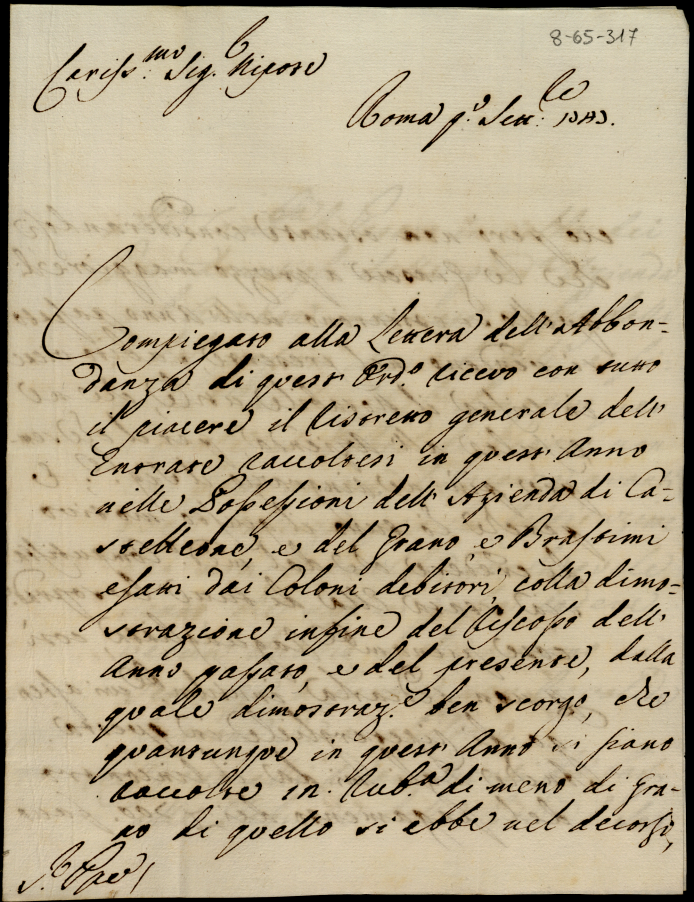 8-65-317
Cariss.mo Sig.e Nipote
Roma p.o Sett.bre
Compiegato alla Lettera dell'Abbon=
danza di quest'Ord.o ricevo con tutto
il piacere il ristretto generale dell'
Entrate raccoltesi in quest'Anno
nelle Possessioni dell'Azienda di Ca=
stelleone, e del Grano, e Brastimi
esatti dai Coloni debitori, colla dimo=
strazione infine del riscosso dell'
Anno passato, e del presente, dalla
quale dimostraz.e ben scorgo, che
quantunque in quest'Anno si siano
raccolte in Rub.a di meno di Gra=
no di quello si ebbe nel decorso,